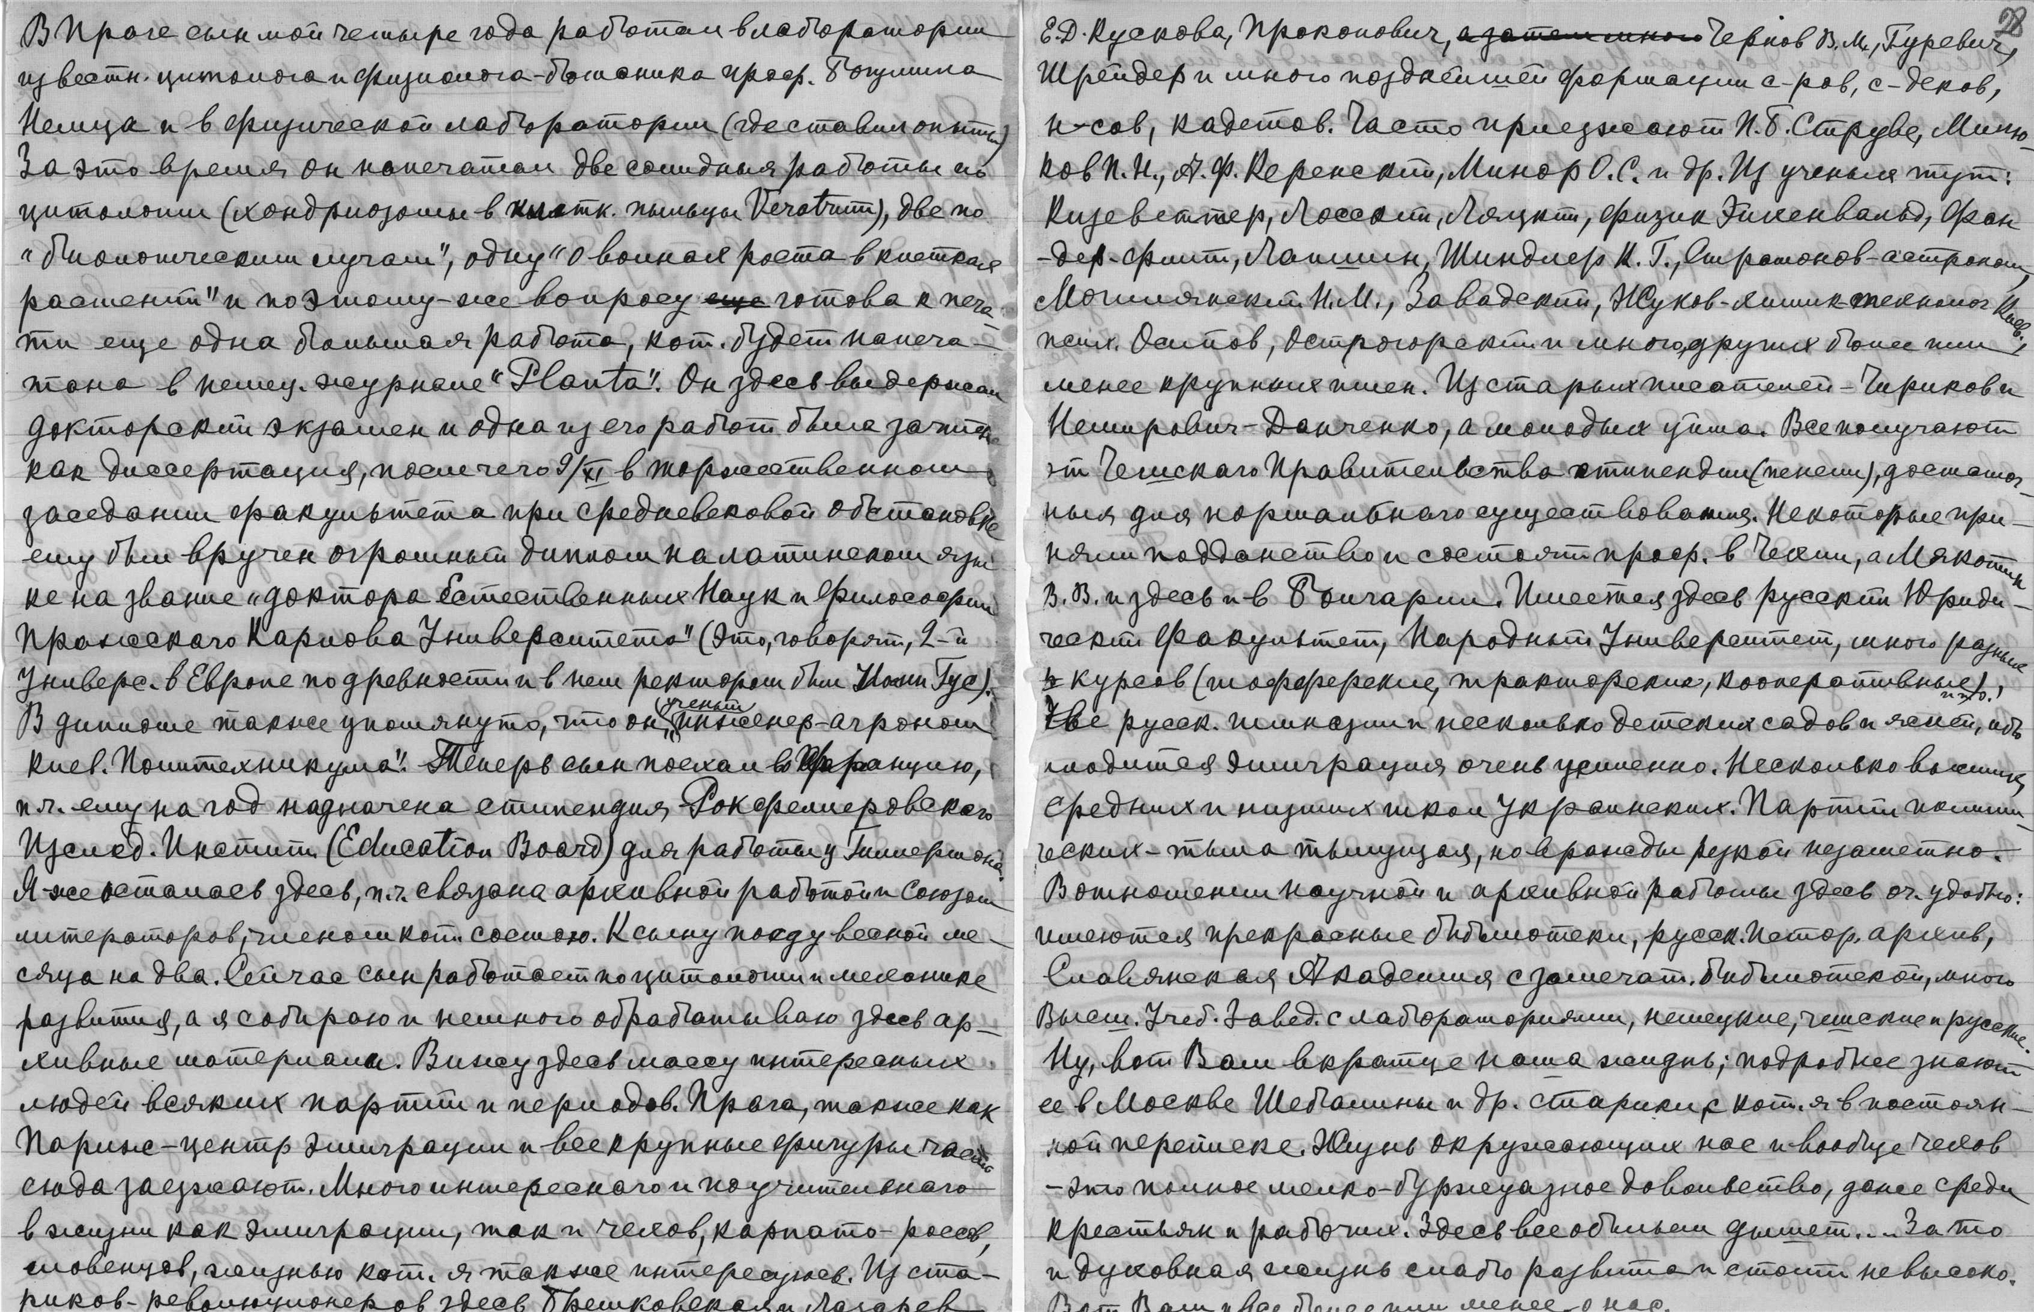 В Праге сын мой четыре года работал в лаборатории
известн. цитолога и физиолога-ботаника проф. Богумила
Немца и в физической лаборатории (где ставил опыты)
За это время он напечатал две солидныя работы по
цитологии (хондриозомы в клетк. пыльцы Veratrum), две по
"биологическим лучам", одну "О волнах роста в клетках
растений" и по этому-же вопросу еще готова к печа-
ти еще одна большая работа, кот. будет напеча-
тана в немец. журнале "Planta". Он здесь выдержал
докторский экзамен и одна из его работ была зачтена
как диссертация, после чего 9/XI в торжественном
заседании факультета при средневековой обстановке
ему был вручен огромный диплом на латинском язы
ке на звание "доктора Естественных Наук и Философии
Пражскаго Карлова Университета" (Это, говорят, 2-й
Универс. в Европе по древности и в нем ректором был Иоанн Гус).
В дипломе также упомянуто, что он "ученый инженер-агроном
Киев. Политехникума". Теперь сын поехал во Францию,
п.ч. ему на год назначена стипендия Рокфеллеровскаго
Изслед. Инстит. (Education Board) для работы у Гиллермона.
Я-же осталась здесь, п.ч. связана архивной работой и Союзом
литераторов, членом кот. состою. К сыну поеду весной ме-
сяца на два. Сейчас сын работает по цитологии и механике
развития, а я собираю и немного обрабатываю здесь ар-
хивные материалы. Вижу здесь массу интересных
людей всяких партий и периодов. Прага, также как
Париж - центр эмиграции и все крупные фигуры часто
сюда заезжают. Много интереснаго и поучительнаго
в жизни как эмиграции, так и чехов, карпато-россов,
словенцов, жизнью кот. я также интересуюсь. Из ста-
риков-революционеров здесь Брешковская и Лазарев
28
Е.Д. Кускова, Прокопович, а затем много Чернов В.М., Гуревич,
Шрейдер и много позднейшей формации с-ров, с-деков,
н-сов, кадетов. Часто приезжают П.Б. Струве, Милю-
ков П.Н., А.Ф. Керенский, Минор О.С. и др. Из ученых тут:
Кизеветтер, Лосский, Ляцкий, физик Эйхенвальд, Фан
-дер-Флит, Лапшин, Шиндлер К.Г., Стратонов-астроном,
Могилянский Н.М., Завадский, Жуков-химик технолог Киев.,
псих. Осипов, Острогорский и много других более или
менее крупных имен. Из старых писателей - Чириков и
Немирович-Данченко, а молодых уйма. Все получают
от Чешскаго Правительства стипендии (пенсии), достаточ-
ныя для нормальнаго существования. Некоторые при-
няли подданство и состоят проф. в Чехии, а Мякотин
В.В. и здесь и в Болгарии. Имеется здесь русский Юриди-
ческий Факультет, Народный Университет, много разных
курсов (шофферские, тракторские, кооперативные и др.),
Две русск. гимназии и несколько детских садов и яслей, ибо
плодится эмиграция очень усиленно. Несколько высших,
средних и низших школ Украинских. Партий полити-
ческих - тьма тьмущая, но вражды резкой незаметно.
В отношении научной и архивной работы здесь оч. удобно:
имеются прекрасные библиотеки, русск. Истор. архив,
Славянская Академия с замечат. библиотекой, много
Высш. Учеб. Завед. с лабораториями, немецкие, чешские и русские.
Ну, вот Вам вкратце наша жизнь; подробнее знают
ее в Москве Шебалины и др. старики, с кот. я в постоян-
ной переписке. Жизнь окружающих нас и вообще чехов
- это полное мелко-буржуазное довольство, даже среди
крестьян и рабочих. Здесь все обильем дышет... За то
и духовная жизнь слабо развита и стоит не высоко.
Вот Вам и все более или менее о нас.